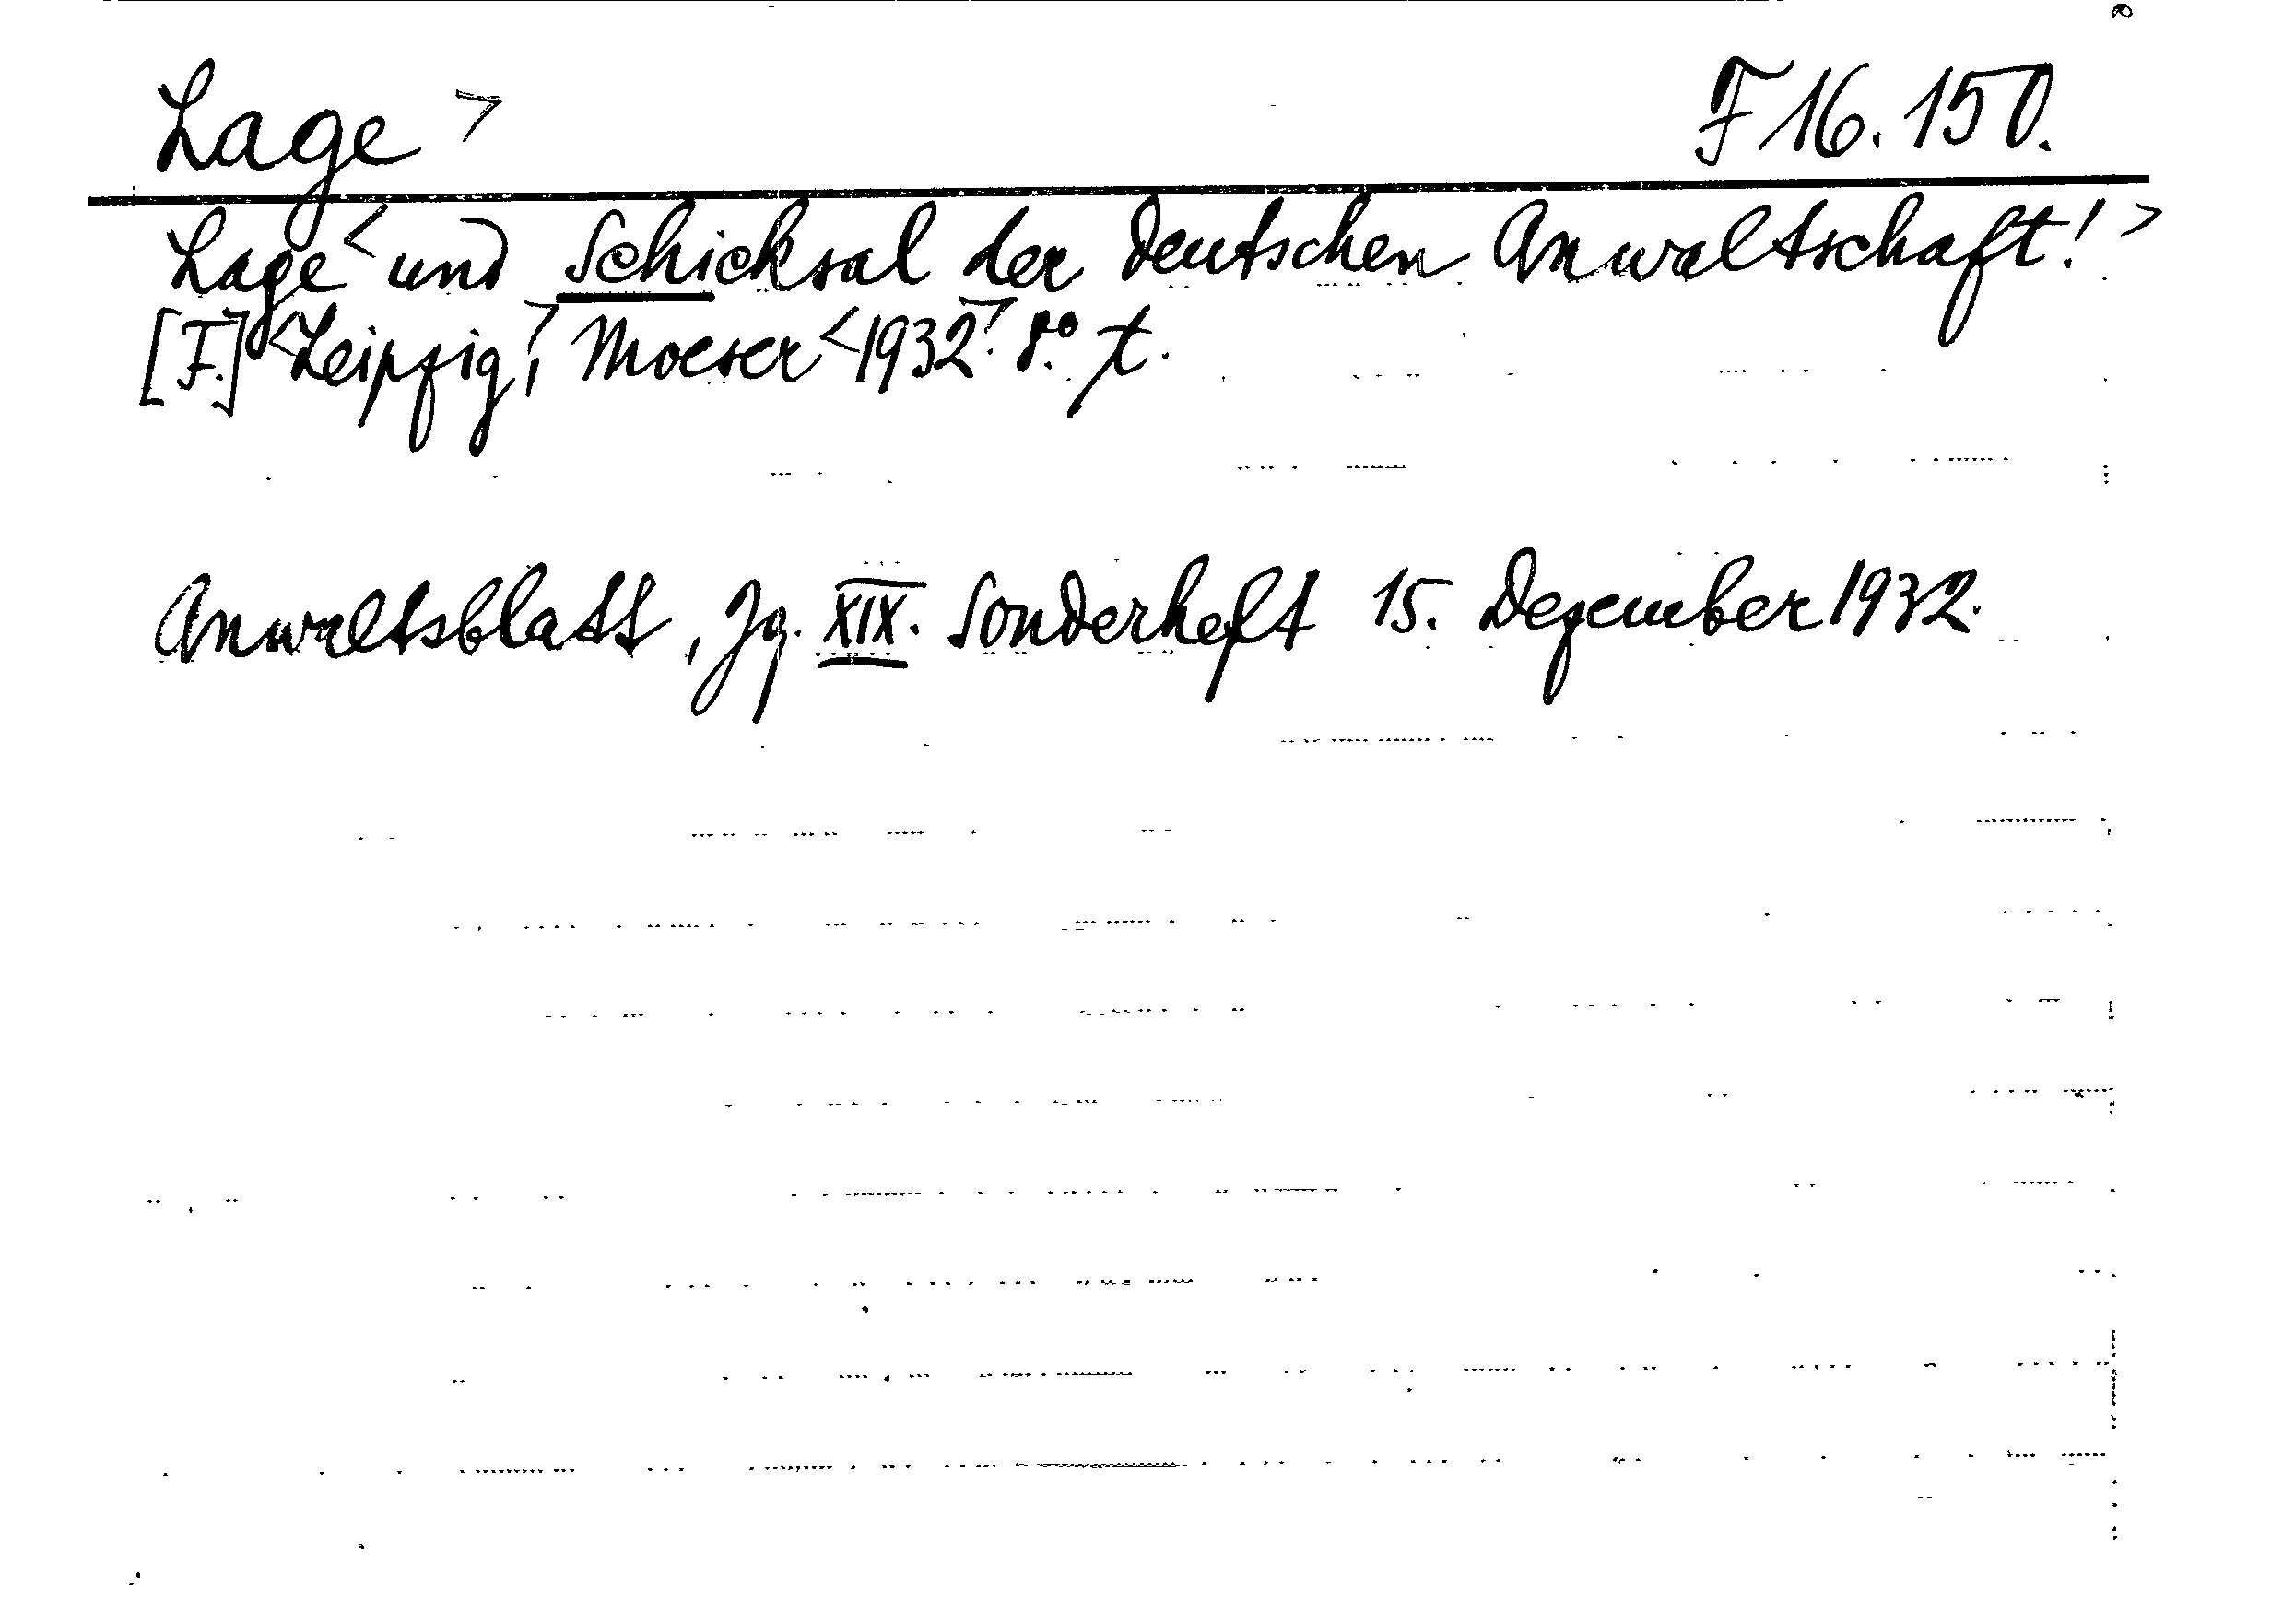 Lage > F 16.150.
Lage < und Schicksal der deutschen Anwaltschaft! >
[F.] <Leipzig>, Moeser <1932>. 8.° t.
Anwaltsblatt, Jg. XIX. Sonderheft 15. Dezember 1932.